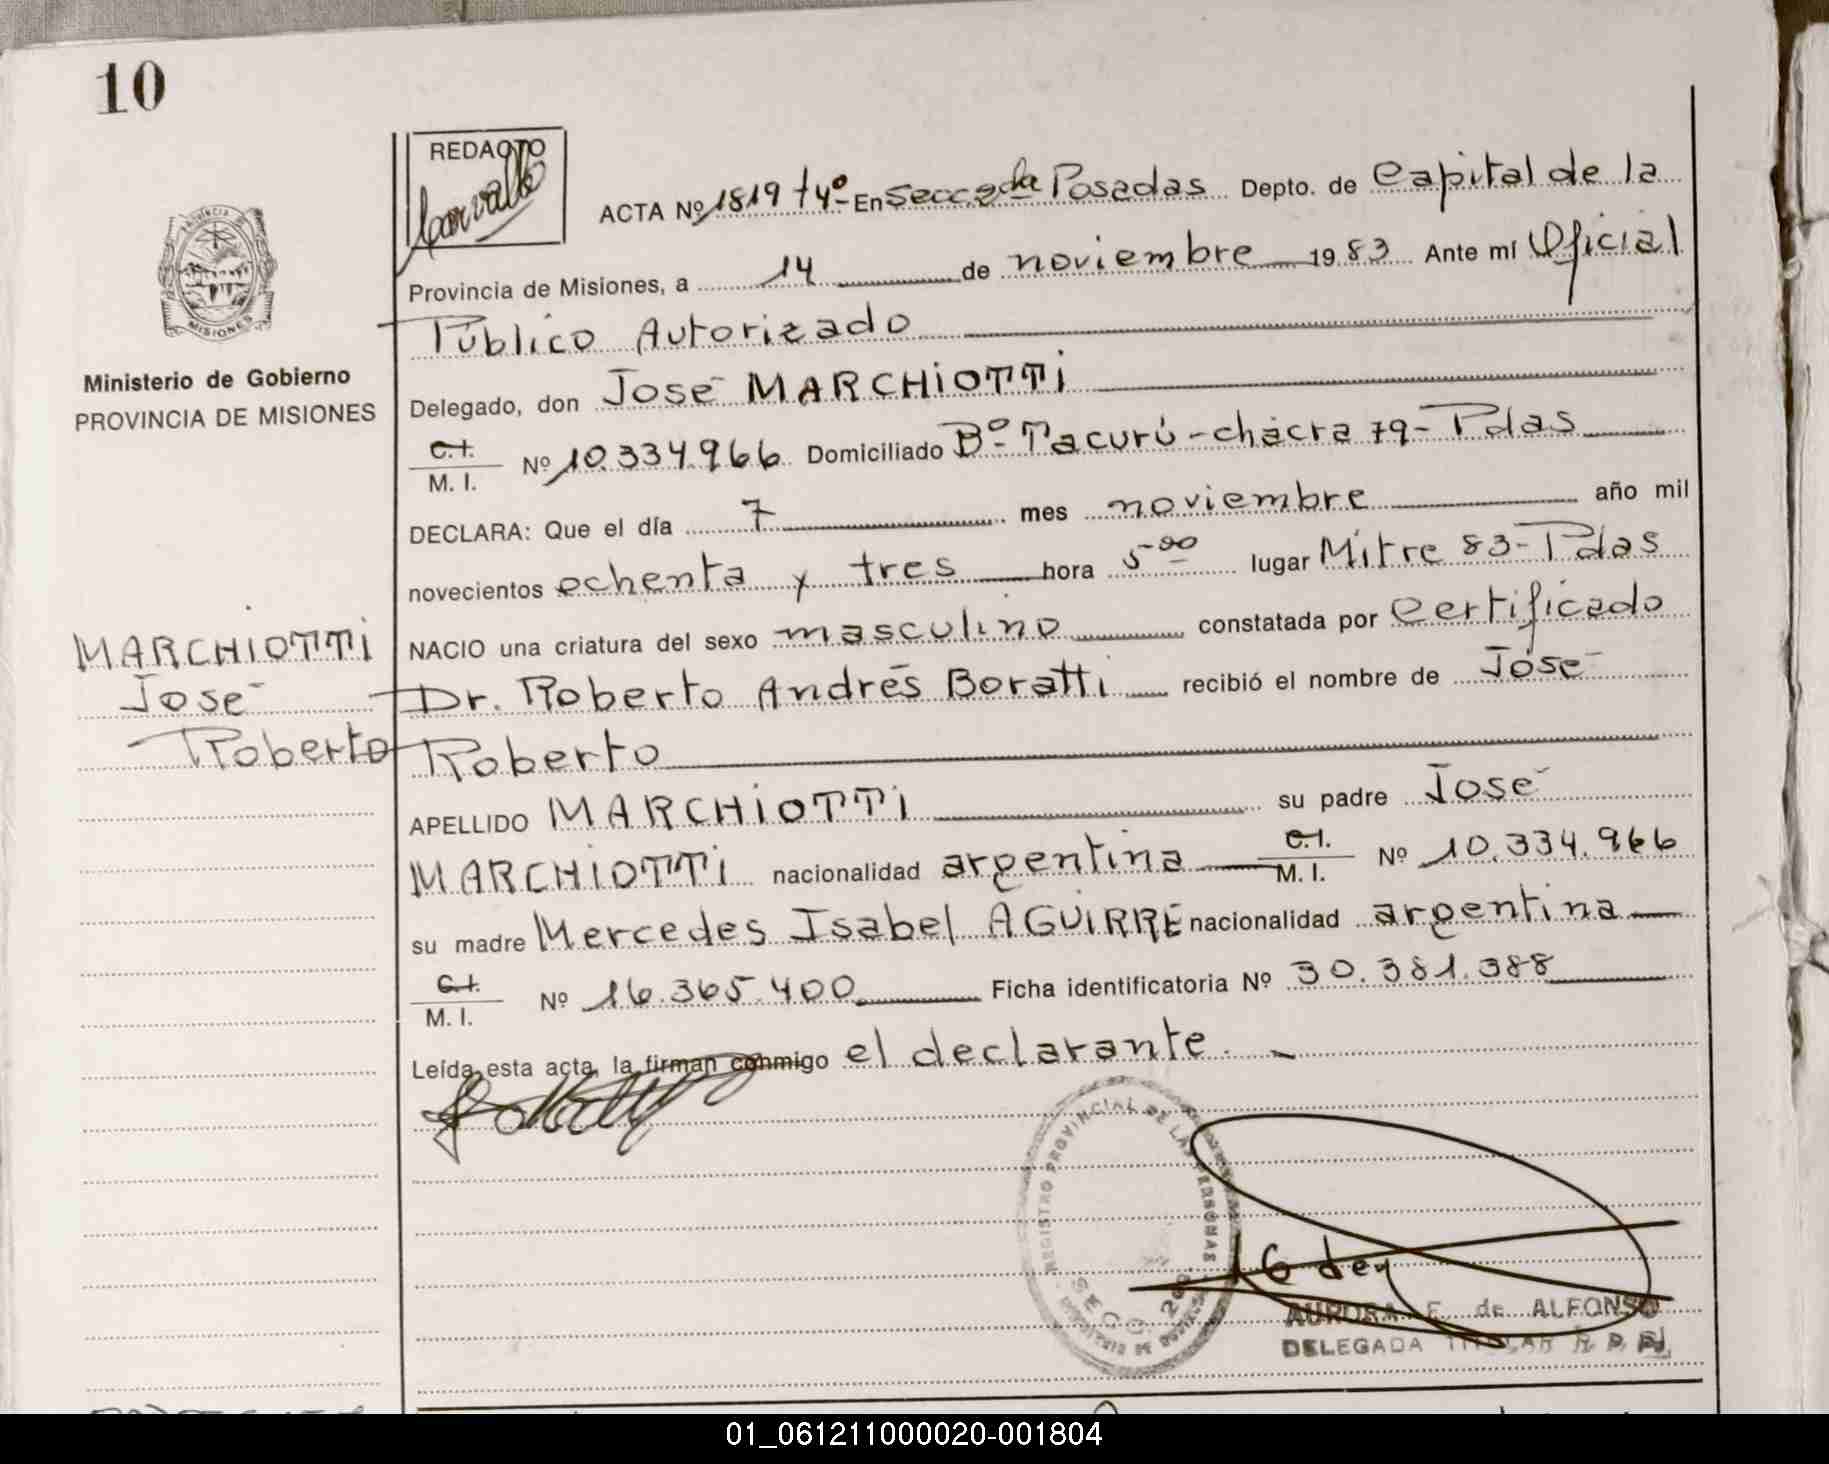 10
REDACTO
ACTA Nº 1819 t4º En Secc 2da Posadas Depto. de Capital de la
Provincia de Misiones, a 14 de noviembre 1983 Ante mí Oficial
Público Autorizado
PROVINCIA DE MISIONES
Ministerio de Gobierno
PROVINCIA DE MISIONES
Delegado, don José MARCHiOTTi
C.I.
M. I. Nº 10.334.966 Domiciliado Bº Tacurú - chacra 79 - Pdas
DECLARA: Que el día 7 mes noviembre año mil
novecientos ochenta y tres hora 5 00 lugar Mitre 83 - Pdas
NACIO una criatura del sexo masculino constatada por Certificado
MARCHiOTTi
José
Roberto
Dr. Roberto Andrés Boratti recibió el nombre de José
Roberto
APELLIDO MARCHiOTTi su padre José
MARCHiOTTi nacionalidad argentina C.I. M. I. Nº 10.334.966
su madre Mercedes Isabel AGUiRRE nacionalidad argentina
C.I.
M. I. Nº 16.365.400 Ficha identificatoria Nº 30.381.388
Leída esta acta, la firman conmigo el declarante.
REGISTRO PROVINCIAL DE LAS PERSONAS
SECC. 2da
AURORA F. de ALFONSO
DELEGADA TITULAR R. P. P.
01_061211000020-001804